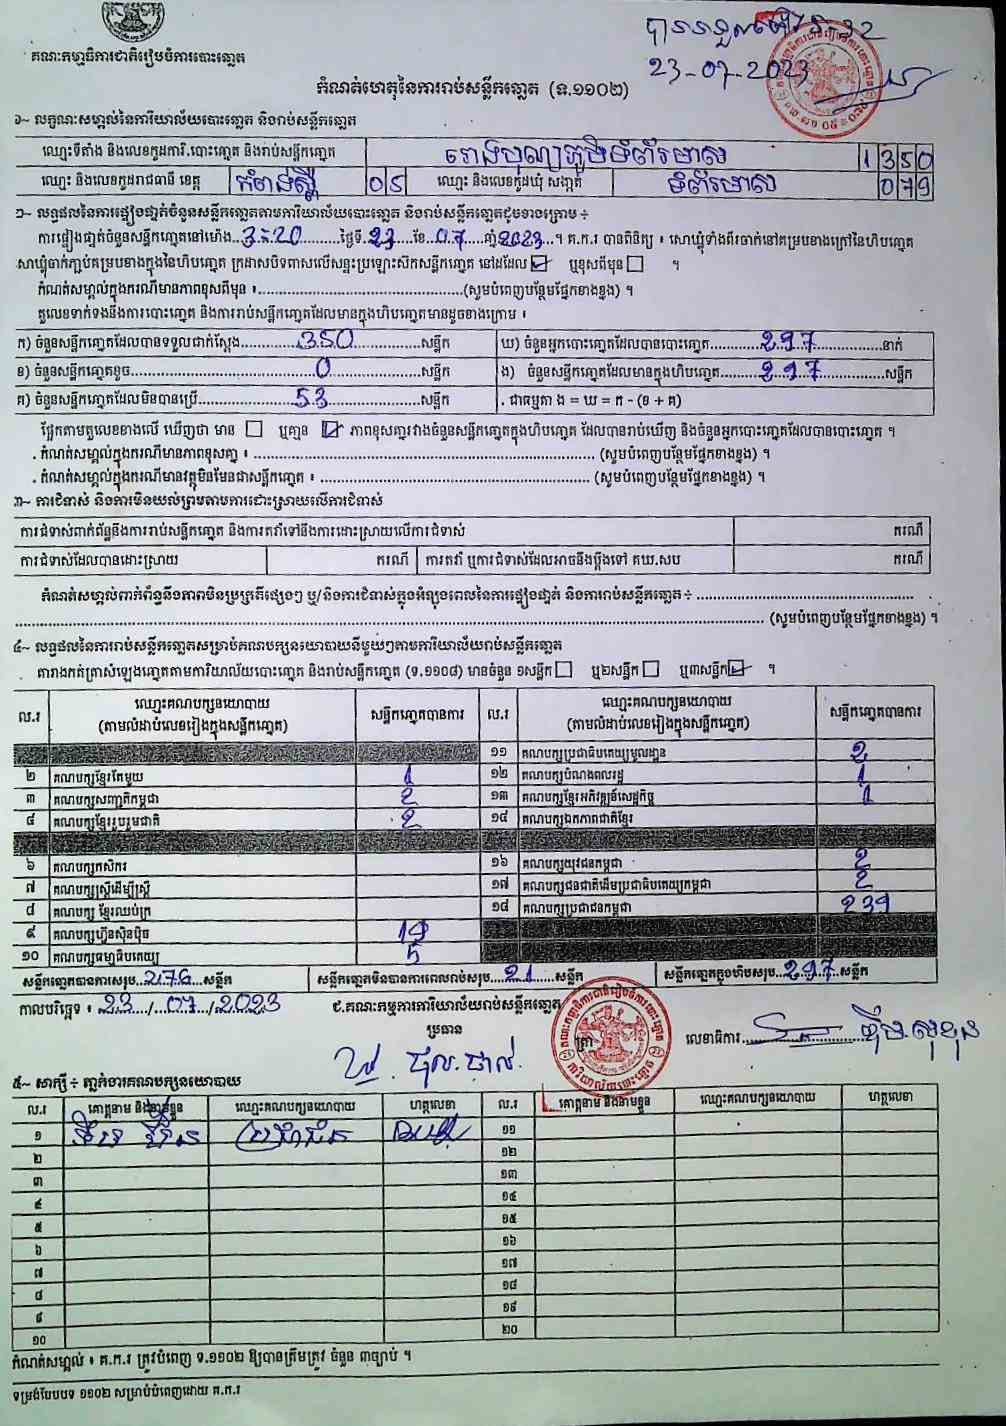 គណៈកម្មាធិការជាតិរៀបចំការបោះឆ្នោត
បានទទួលម៉ោង
23-07-2023
កំណត់ហេតុនៃការរាប់សន្លឹកឆ្នោត (ទ.១១០២)
១~ លក្ខណៈសម្គាល់នៃការិយាល័យបោះឆ្នោត និងរាប់សន្លឹកឆ្នោត
ឈ្មោះទីតាំង និងលេខកូដការិ.បោះឆ្នោត និងរាប់សន្លឹកឆ្នោត រោងបុណ្យភូមិទំព័រមាស 1350
ឈ្មោះ និងលេខកូដរាជធានី ខេត្ត កំពង់ស្ពឺ 05 ឈ្មោះ និងលេខកូដឃុំ សង្កាត់ ទំព័រមាស 079
២~ លទ្ធផលនៃការផ្ទៀងផ្ទាត់ចំនួនសន្លឹកឆ្នោតតាមការិយាល័យបោះឆ្នោត និងរាប់សន្លឹកឆ្នោតដូចខាងក្រោម ÷
ការផ្ទៀងផ្ទាត់ចំនួនសន្លឹកឆ្នោតនៅម៉ោង...3:20...ថ្ងៃទី.23...ខែ.07...ឆ្នាំ2023...។ គ.ក.រ បានពិនិត្យ ៖ សោឃ្លុំទាំងពីរចាក់នៅគម្របខាងក្រៅនៃហិបឆ្នោត
សាឃ្លុំចាក់ភ្ជាប់គម្របខាងក្នុងនៃហិបឆ្នោត ក្រដាសបិទពាសលើសន្ទះប្រឡោះសិកសន្លឹកឆ្នោត នៅដដែល ☑ ឬខុសពីមុន ☐ ។
កំណត់សម្គាល់ក្នុងករណីមានភាពខុសពីមុន ៖............(សូមបំពេញបន្ថែមផ្នែកខាងខ្នង) ។
តួលេខទាក់ទងនឹងការបោះឆ្នោត និងការរាប់សន្លឹកឆ្នោតដែលមានក្នុងហិបឆ្នោតមានដូចខាងក្រោម ៖
ក) ចំនួនសន្លឹកឆ្នោតដែលបានទទួលជាក់ស្ដែង......350......សន្លឹក ឃ) ចំនួនអ្នកបោះឆ្នោតដែលបានបោះឆ្នោត......297......នាក់
ខ) ចំនួនសន្លឹកឆ្នោតខូច......0......សន្លឹក ង) ចំនួនសន្លឹកឆ្នោតដែលមានក្នុងហិបឆ្នោត......297......សន្លឹក
គ) ចំនួនសន្លឹកឆ្នោតដែលមិនបានប្រើ......53......សន្លឹក . ជាធម្មតា ង = ឃ = ក - (ខ + គ)
ផ្អែកតាមតួលេខខាងលើ ឃើញថា មាន ☐ ឬគ្មាន ☑ ភាពខុសគ្នារវាងចំនួនសន្លឹកឆ្នោតក្នុងហិបឆ្នោត ដែលបានរាប់ឃើញ និងចំនួនអ្នកបោះឆ្នោតដែលបានបោះឆ្នោត ។
. កំណត់សម្គាល់ក្នុងករណីមានភាពខុសគ្នា ៖ ............ (សូមបំពេញបន្ថែមផ្នែកខាងខ្នង) ។
. កំណត់សម្គាល់ក្នុងករណីមានវត្ថុមិនមែនជាសន្លឹកឆ្នោត ៖ ............ (សូមបំពេញបន្ថែមផ្នែកខាងខ្នង) ។
៣~ ការជំទាស់ និងការមិនយល់ព្រមតាមការដោះស្រាយលើការជំទាស់
ការជំទាស់ពាក់ព័ន្ធនឹងការរាប់សន្លឹកឆ្នោត និងការតវ៉ាទៅនឹងការដោះស្រាយលើការជំទាស់ ករណី
ការជំទាស់ដែលបានដោះស្រាយ ករណី ការតវ៉ា ឬការជំទាស់ដែលអាចនឹងប្ដឹងទៅ គឃ.សប ករណី
កំណត់សម្គាល់ពាក់ព័ន្ធនឹងភាពមិនប្រក្រតីផ្សេងៗ ឬ/និងការជំទាស់ក្នុងអំឡុងពេលនៃការផ្ទៀងផ្ទាត់ និងការរាប់សន្លឹកឆ្នោត ÷ ............
............ (សូមបំពេញបន្ថែមផ្នែកខាងខ្នង) ។
៤~ លទ្ធផលនៃការរាប់សន្លឹកឆ្នោតសម្រាប់គណបក្សនយោបាយនីមួយៗតាមការិយាល័យរាប់សន្លឹកឆ្នោត
តារាងកត់ត្រាសំឡេងឆ្នោតតាមការិយាល័យបោះឆ្នោត និងរាប់សន្លឹកឆ្នោត (ទ.១១០៨) មានចំនួន ១សន្លឹក ☐ ឬ២សន្លឹក ☐ ឬ៣សន្លឹក ☑ ។
ល.រ ឈ្មោះគណបក្សនយោបាយ សន្លឹកឆ្នោតបានការ ល.រ ឈ្មោះគណបក្សនយោបាយ សន្លឹកឆ្នោតបានការ
(តាមលំដាប់លេខរៀងក្នុងសន្លឹកឆ្នោត) (តាមលំដាប់លេខរៀងក្នុងសន្លឹកឆ្នោត)
១១ គណបក្សប្រជាធិបតេយ្យមូលដ្ឋាន 2
២ គណបក្សខ្មែរតែមួយ 1 ១២ គណបក្សបំណងពលរដ្ឋ 1
៣ គណបក្សសញ្ជាតិកម្ពុជា 2 ១៣ គណបក្សខ្មែរអភិវឌ្ឍន៍សេដ្ឋកិច្ច 1
៤ គណបក្សខ្មែររួបរួមជាតិ 2 ១៤ គណបក្សឯកភាពជាតិខ្មែរ
៦ គណបក្សកសិករ ១៦ គណបក្សយុវជនកម្ពុជា
៧ គណបក្សស្ត្រីដើម្បីស្ត្រី ១៧ គណបក្សជនជាតិដើមប្រជាធិបតេយ្យកម្ពុជា 2
៨ គណបក្ស ខ្មែរឈប់ក្រ ១៨ គណបក្សប្រជាជនកម្ពុជា 239
៩ គណបក្សហ៊្វុនស៊ិនប៉ិច 19
១០ គណបក្សធម្មាធិបតេយ្យ 5
សន្លឹកឆ្នោតបានការសរុប..276..សន្លឹក សន្លឹកឆ្នោតមិនបានការពេលរាប់សរុប..21..សន្លឹក សន្លឹកឆ្នោតក្នុងហិបសរុប..297..សន្លឹក
កាលបរិច្ឆេទ ៖ 23/07/2023 ជ.គណៈកម្មការការិយាល័យរាប់សន្លឹកឆ្នោត
ប្រធាន លេខាធិការ............
ត្រា
៥~ សាក្សី ÷ ភ្នាក់ងារគណបក្សនយោបាយ
ល.រ គោត្តនាម និងនាមខ្លួន ឈ្មោះគណបក្សនយោបាយ ហត្ថលេខា ល.រ គោត្តនាម និងនាមខ្លួន ឈ្មោះគណបក្សនយោបាយ ហត្ថលេខា
១ ប្រជាជន ១១
២ ១២
៣ ១៣
៤ ១៤
៥ ១៥
៦ ១៦
៧ ១៧
៨ ១៨
៩ ១៩
១០ ២០
កំណត់សម្គាល់ ៖ គ.ក.រ ត្រូវបំពេញ ទ.១១០២ ឱ្យបានត្រឹមត្រូវ ចំនួន ៣ច្បាប់ ។
ទម្រង់បែបបទ ១១០២ សម្រាប់បំពេញដោយ គ.ក.រ